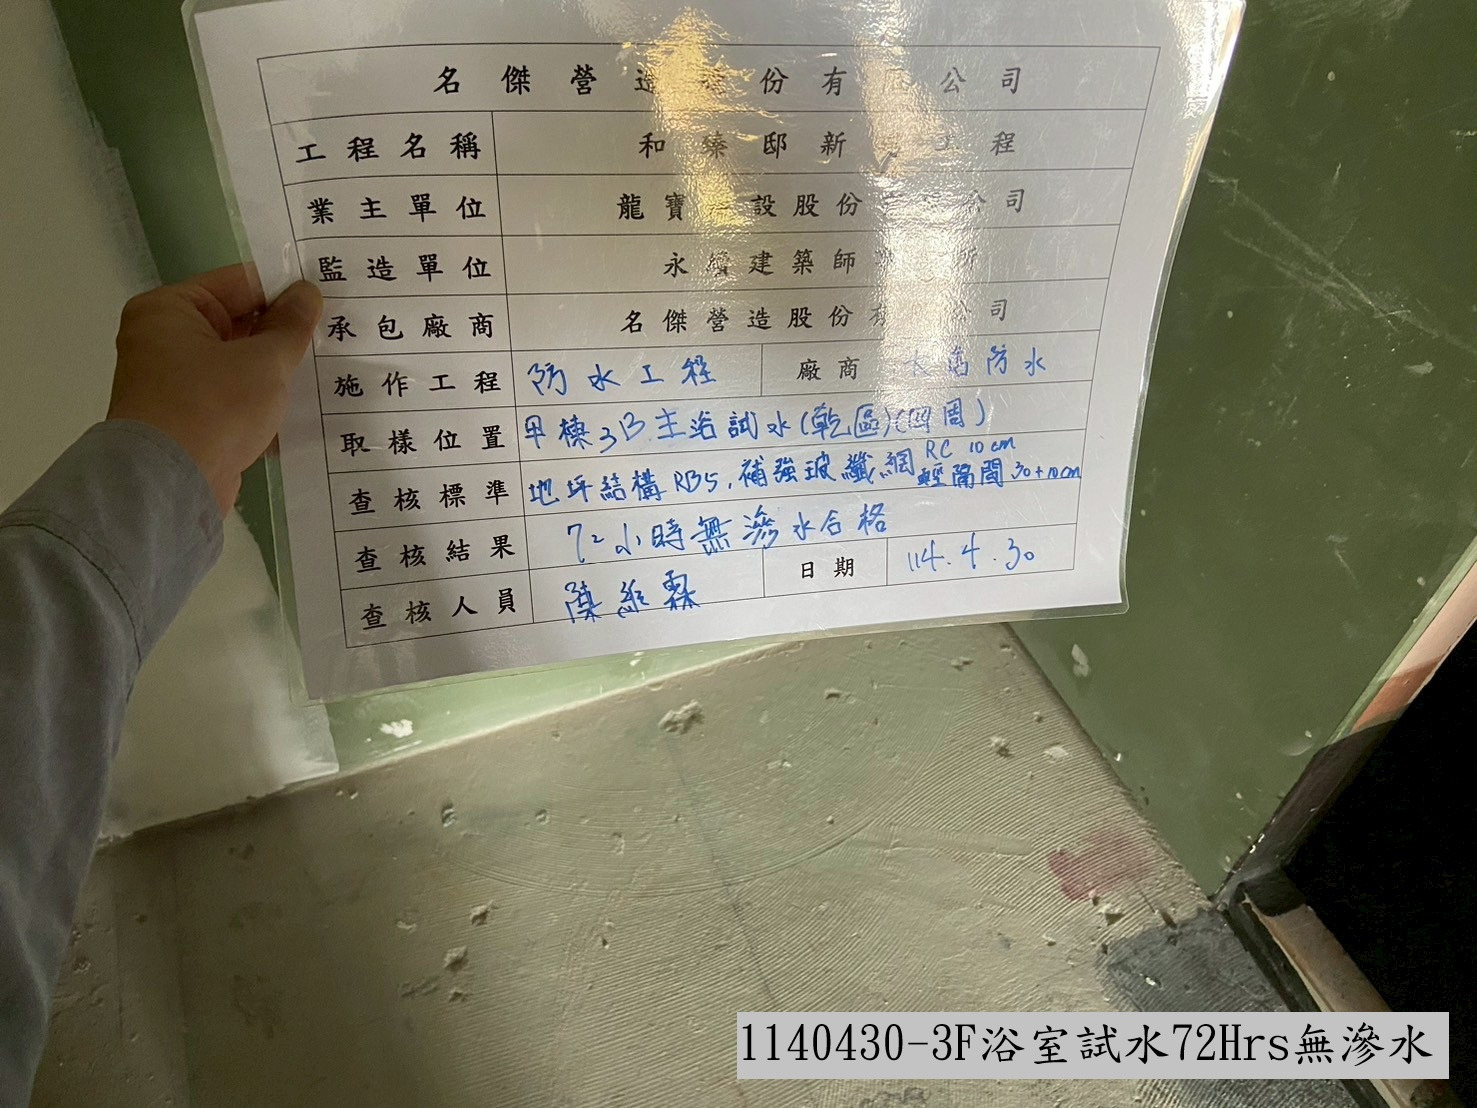 名傑營造 份有 公司
工程名稱 和臻邸新 工程
業主單位 龍寶 設股份 公司
監造單位 永續建築師 所
承包廠商 名傑營造股份有 公司
施作工程 防水工程 廠商 防水
取樣位置 甲棟3B.主浴試水(乾區)(四周)
查核標準 地坪結構RB5.補強玻纖網 RC 10cm 輕隔間30+10cm
查核結果 72小時無滲水合格
查核人員 陳維霖 日期 114.4.30
1140430-3F浴室試水72Hrs無滲水